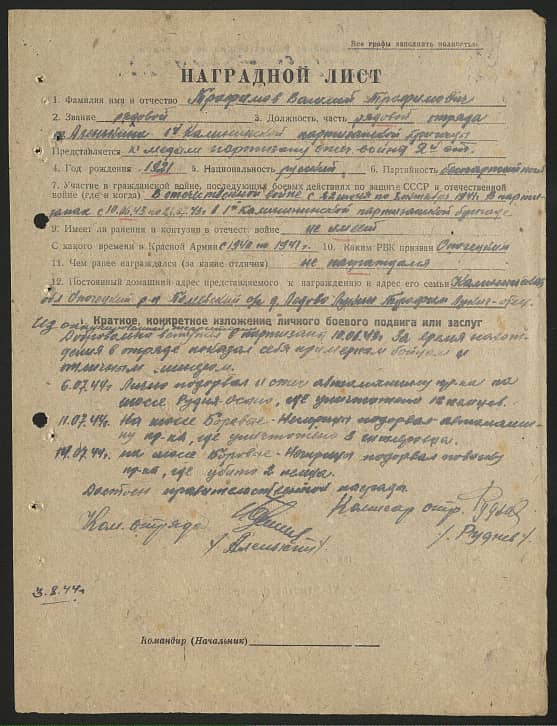 Все графы заполнять полностью.
НАГРАДНОЙ ЛИСТ
1. Фамилия имя и отчество Трофимов Василий Трофимович
2. Звание рядовой 3. Должность, часть рядовой отряда
1й Калининской партизанской бригады
Представляется к медали партизану отеч. войны 2й ст.
4. Год рождения 1921 5. Национальность русский 6. Партийность беспартийный
7. Участие в гражданской войне, последующих боевых действиях по защите СССР и отечественной
войне (где и когда) В отечественной войне с 22 июня по 1941г. В парти-
занах с по 44г. в 1й Калининской партизанской бригаде
9. Имеет ли ранения и контузии в отечест. войне не имеет
С какого времени в Красной Армии с 1940 по 1941г. 10. Каким РВК призван Опочецким
11. Чем ранее награждался (за какие отличия) не награждался
12. Постоянный домашний адрес представляемого к награждению и адрес его семьи Калининская
обл Опочецкий р-н с/с д. Трофим отец.
Краткое, конкретное изложение личного боевого подвига или заслуг
Добровольно вступил в партизаны За время нахож-
дения в отряде показал себя примерным бойцом и
отличным
6.07.44г. Лично подорвал и сжег автомашину пр-ка на
шоссе где уничтожено 12 немцев.
11.07.44г. На шоссе подорвал автомаши-
ну пр-ка, где уничтожено 3
14.07.44г. на шоссе подорвал повозку
пр-ка, где убито 2 немца.
Достоин правительственной награды.
Ком. отряда
Комисар отр.
/Руднев/
3.8.44г.
Командир (Начальник)